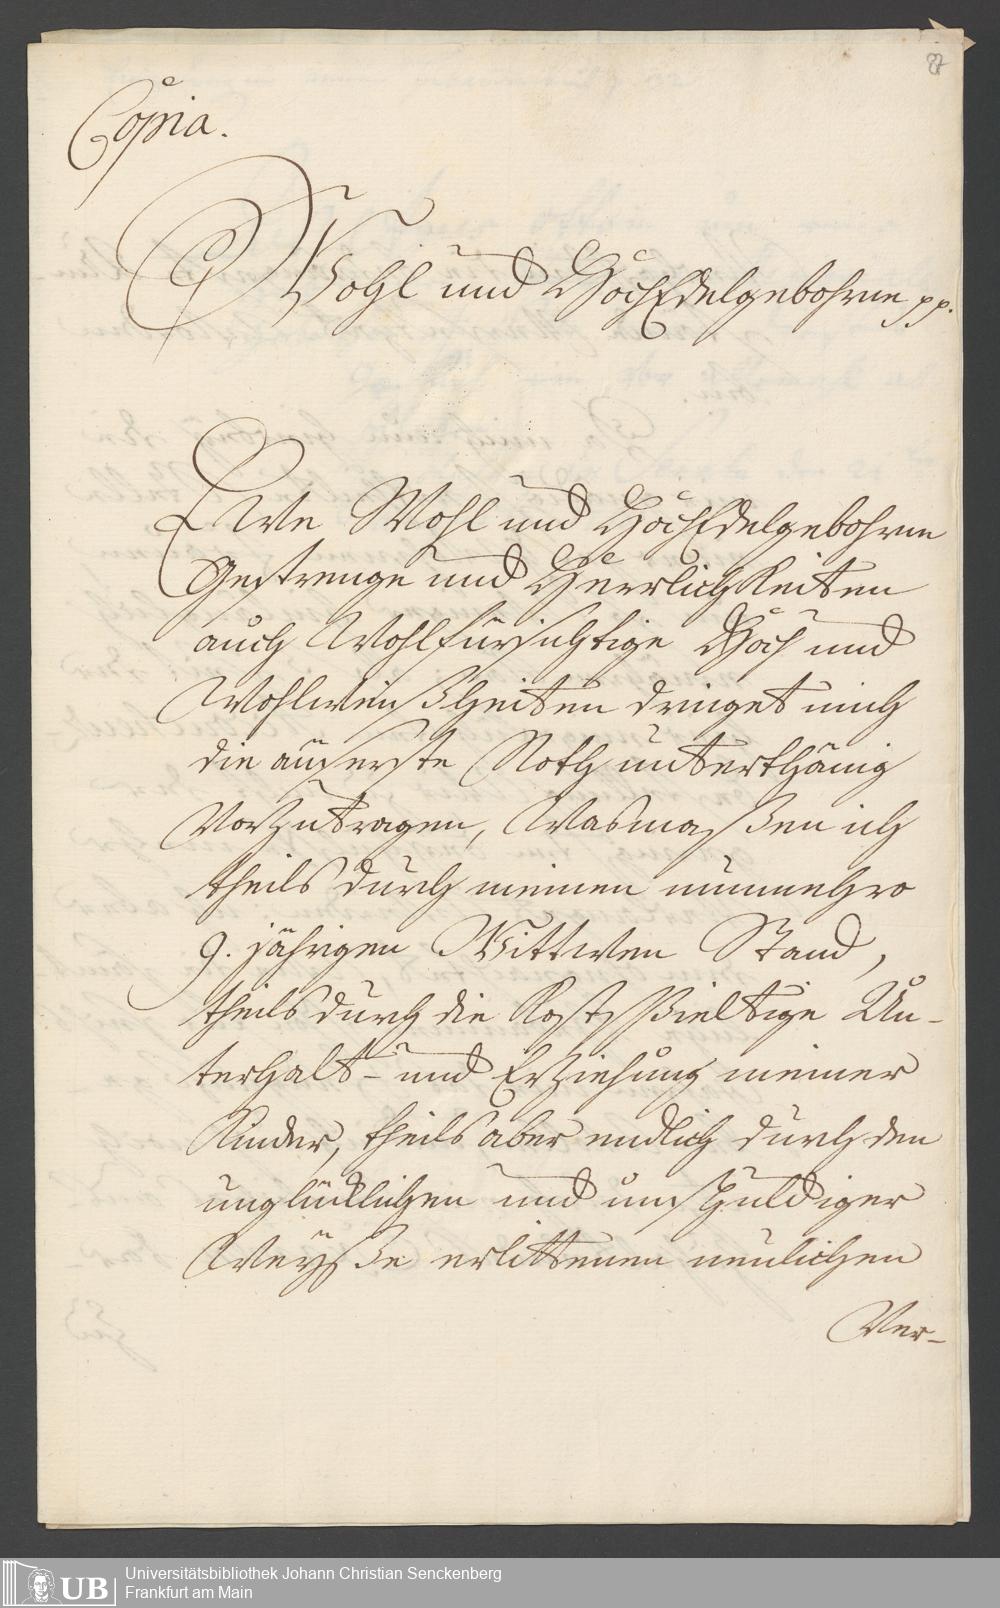 87
Copia.
Wohl und HochEdelgebohrne pp.
EWe Wohl und HochEdelgebohrne
Gestrenge und Herrlichkeiten
auch Wohlfürsichtige Hoch und
Wohlweißheiten dringet mich
die äuserste Noth unterthänig
Vorzutragen, Wasmaßen ich
theils durch meinen nunmehro
9. jährigen Wittwen Stand,
theils durch die Kostspieltige Un-
terhalt- und Erziehung meiner
Kinder, theils aber endlich durch den
unglücklichen und unschuldiger
Weÿße erlittenen neulichen
Ver-
UB
Universitätsbibliothek Johann Christian Senckenberg
Frankfurt am Main